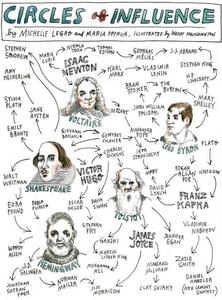 CIRCLES of INFLUENCE
by MICHELLE LEGRO and MARIA POPOVA, ILLUSTRATED by WENDY MACNAUGHTON
STEPHEN SONDHEIM
MARIE CURIE
NIKOLA TESLA
THOMAS EDISON
GEORGES MÉLIÈS
J.J. ABRAMS
AMY HECKERLING
ISAAC NEWTON
KARL MARX
VLADIMIR LENIN
STEPHEN KING
H.P. LOVECRAFT
SYLVIA PLATH
JANE AUSTEN
VOLTAIRE
BRAM STOKER
MARY SHELLEY
JOHN WILLIAM POLIDORI
EMILY BRONTË
GIOVANNI BOCCACCIO
GEOFFREY CHAUCER
LORD BYRON
PLATO
CHARLES DICKENS
WALT WHITMAN
SHAKESPEARE
VICTOR HUGO
DAVID LYNCH
FRANZ KAFKA
EZRA POUND
PABLO PICASSO
OSCAR WILDE
TOLSTOY
VLADIMIR NABOKOV
WOODY ALLEN
STEPHEN FRY
JAMES JOYCE
JENNIFER EGAN
HEMINGWAY
GANDHI
ZADIE SMITH
J.D. SALINGER
MUHAMMAD ALI
JONATHAN SAFRAN FOER
NORMAN MAILER
JIM MORRISON
CLAY SHIRKY
DANIEL HANDLER
(AKA LEMONY SNICKET)